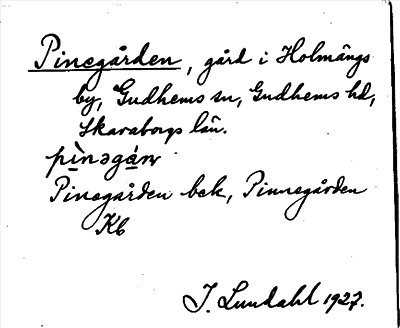 Pinegården, gård i Holmängs
by, Gudhems sn, Gudhems hd,
Skaraborgs län.
pìnəgán
Pinegården bek, Pinnegården
Kb
I. Lundahl 1927.